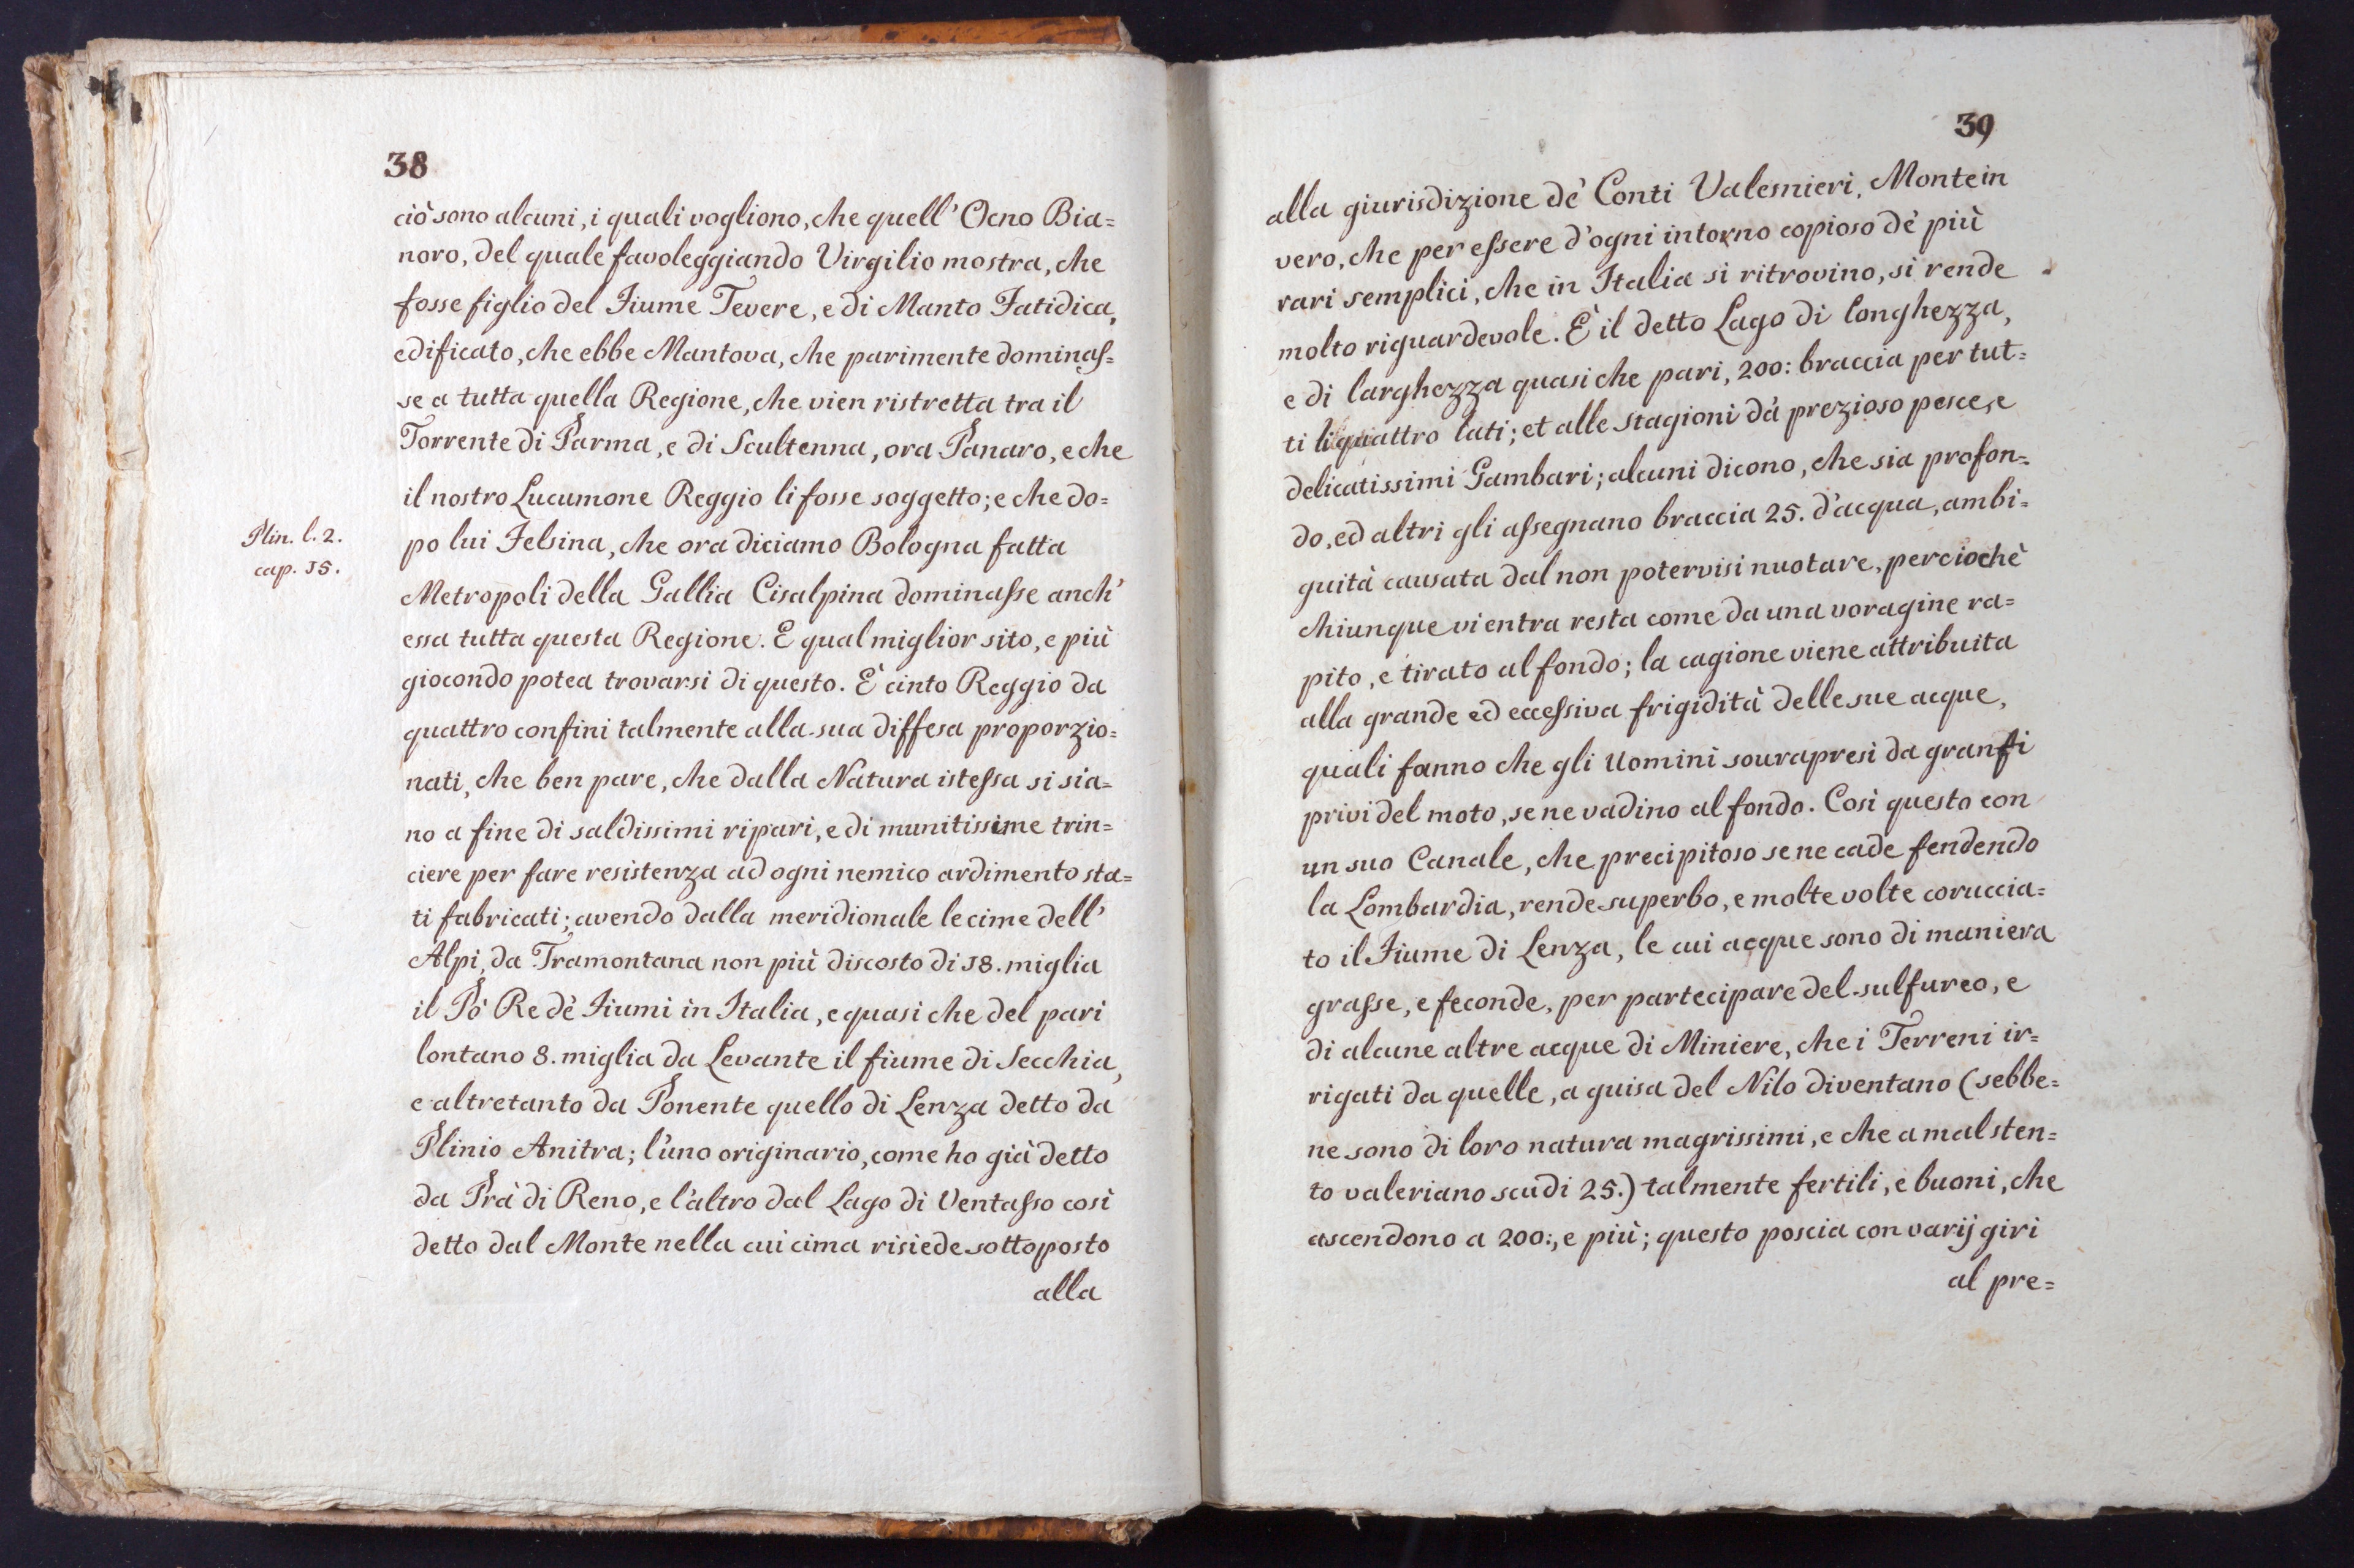 38
ciò sono alcuni, i quali vogliono, che quell' Ocno Bia=
noro, del quale favoleggiando Virgilio mostra, che
fosse figlio del Fiume Tevere, e di Manto Fatidica,
edificato, che ebbe Mantova, che parimente dominas=
se a tutta quella Regione, che vien ristretta tra il
Torrente di Parma, e di Scultenna, ora Panaro, e che
il nostro Lucumone Reggio li fosse soggetto; e che do=
Plin. l. 2.
cap. 15.
po lui Felsina, che ora diciamo Bologna fatta
Metropoli della Gallia Cisalpina dominasse anch'
essa tutta questa Regione. E qual miglior sito, e più
giocondo potea trovarsi di questo. È cinto Reggio da
quattro confini talmente alla sua diffesa proporzio=
nati, che ben pare, che dalla Natura istessa si sia=
no a fine di saldissimi ripari, e di munitissime trin=
ciere per fare resistenza ad ogni nemico ardimento sta=
ti fabricati; avendo dalla meridionale le cime dell'
Alpi, da Tramontana non più discosto di 18. miglia
il Pò Re dè Fiumi in Italia, e quasi che del pari
lontano 8. miglia da Levante il fiume di Secchia,
e altretanto da Ponente quello di Lenza detto da
Plinio Anitra; l'uno originario, come ho già detto
da Prà di Reno, e l'altro dal Lago di Ventasso così
detto dal Monte nella cui cima risiede sottoposto
alla
39
alla giurisdizione dè Conti Valesnieri, Monte in
vero, che per essere d'ogni intorno copioso dè più
rari semplici, che in Italia si ritrovino, si rende
molto riguardevole. È il detto Lago di longhezza,
e di larghezza quasi che pari, 200: braccia per tut=
ti li quattro lati; et alle stagioni dà prezioso pesce, e
delicatissimi Gambari; alcuni dicono, che sia profon=
do, ed altri gli assegnano braccia 25. d'acqua, ambi=
guità causata dal non potervisi nuotare, perciochè
chiunque vi entra resta come da una voragine ra=
pito, e tirato al fondo; la cagione viene attribuita
alla grande ed eccessiva frigidità delle sue acque,
quali fanno che gli Uomini sourapresi da granfi
privi del moto, se ne vadino al fondo. Così questo con
un suo Canale, che precipitoso se ne cade fendendo
la Lombardia, rende superbo, e molte volte coruccia=
to il Fiume di Lenza, le cui acque sono di maniera
grasse, e feconde, per partecipare del sulfureo, e
di alcune altre acque di Miniere, che i Terreni ir=
rigati da quelle, a guisa del Nilo diventano (sebbe=
ne sono di loro natura magrissimi, e che a mal sten=
to valeriano scudi 25.) talmente fertili, e buoni, che
ascendono a 200:, e più; questo poscia con varij giri
al pre=